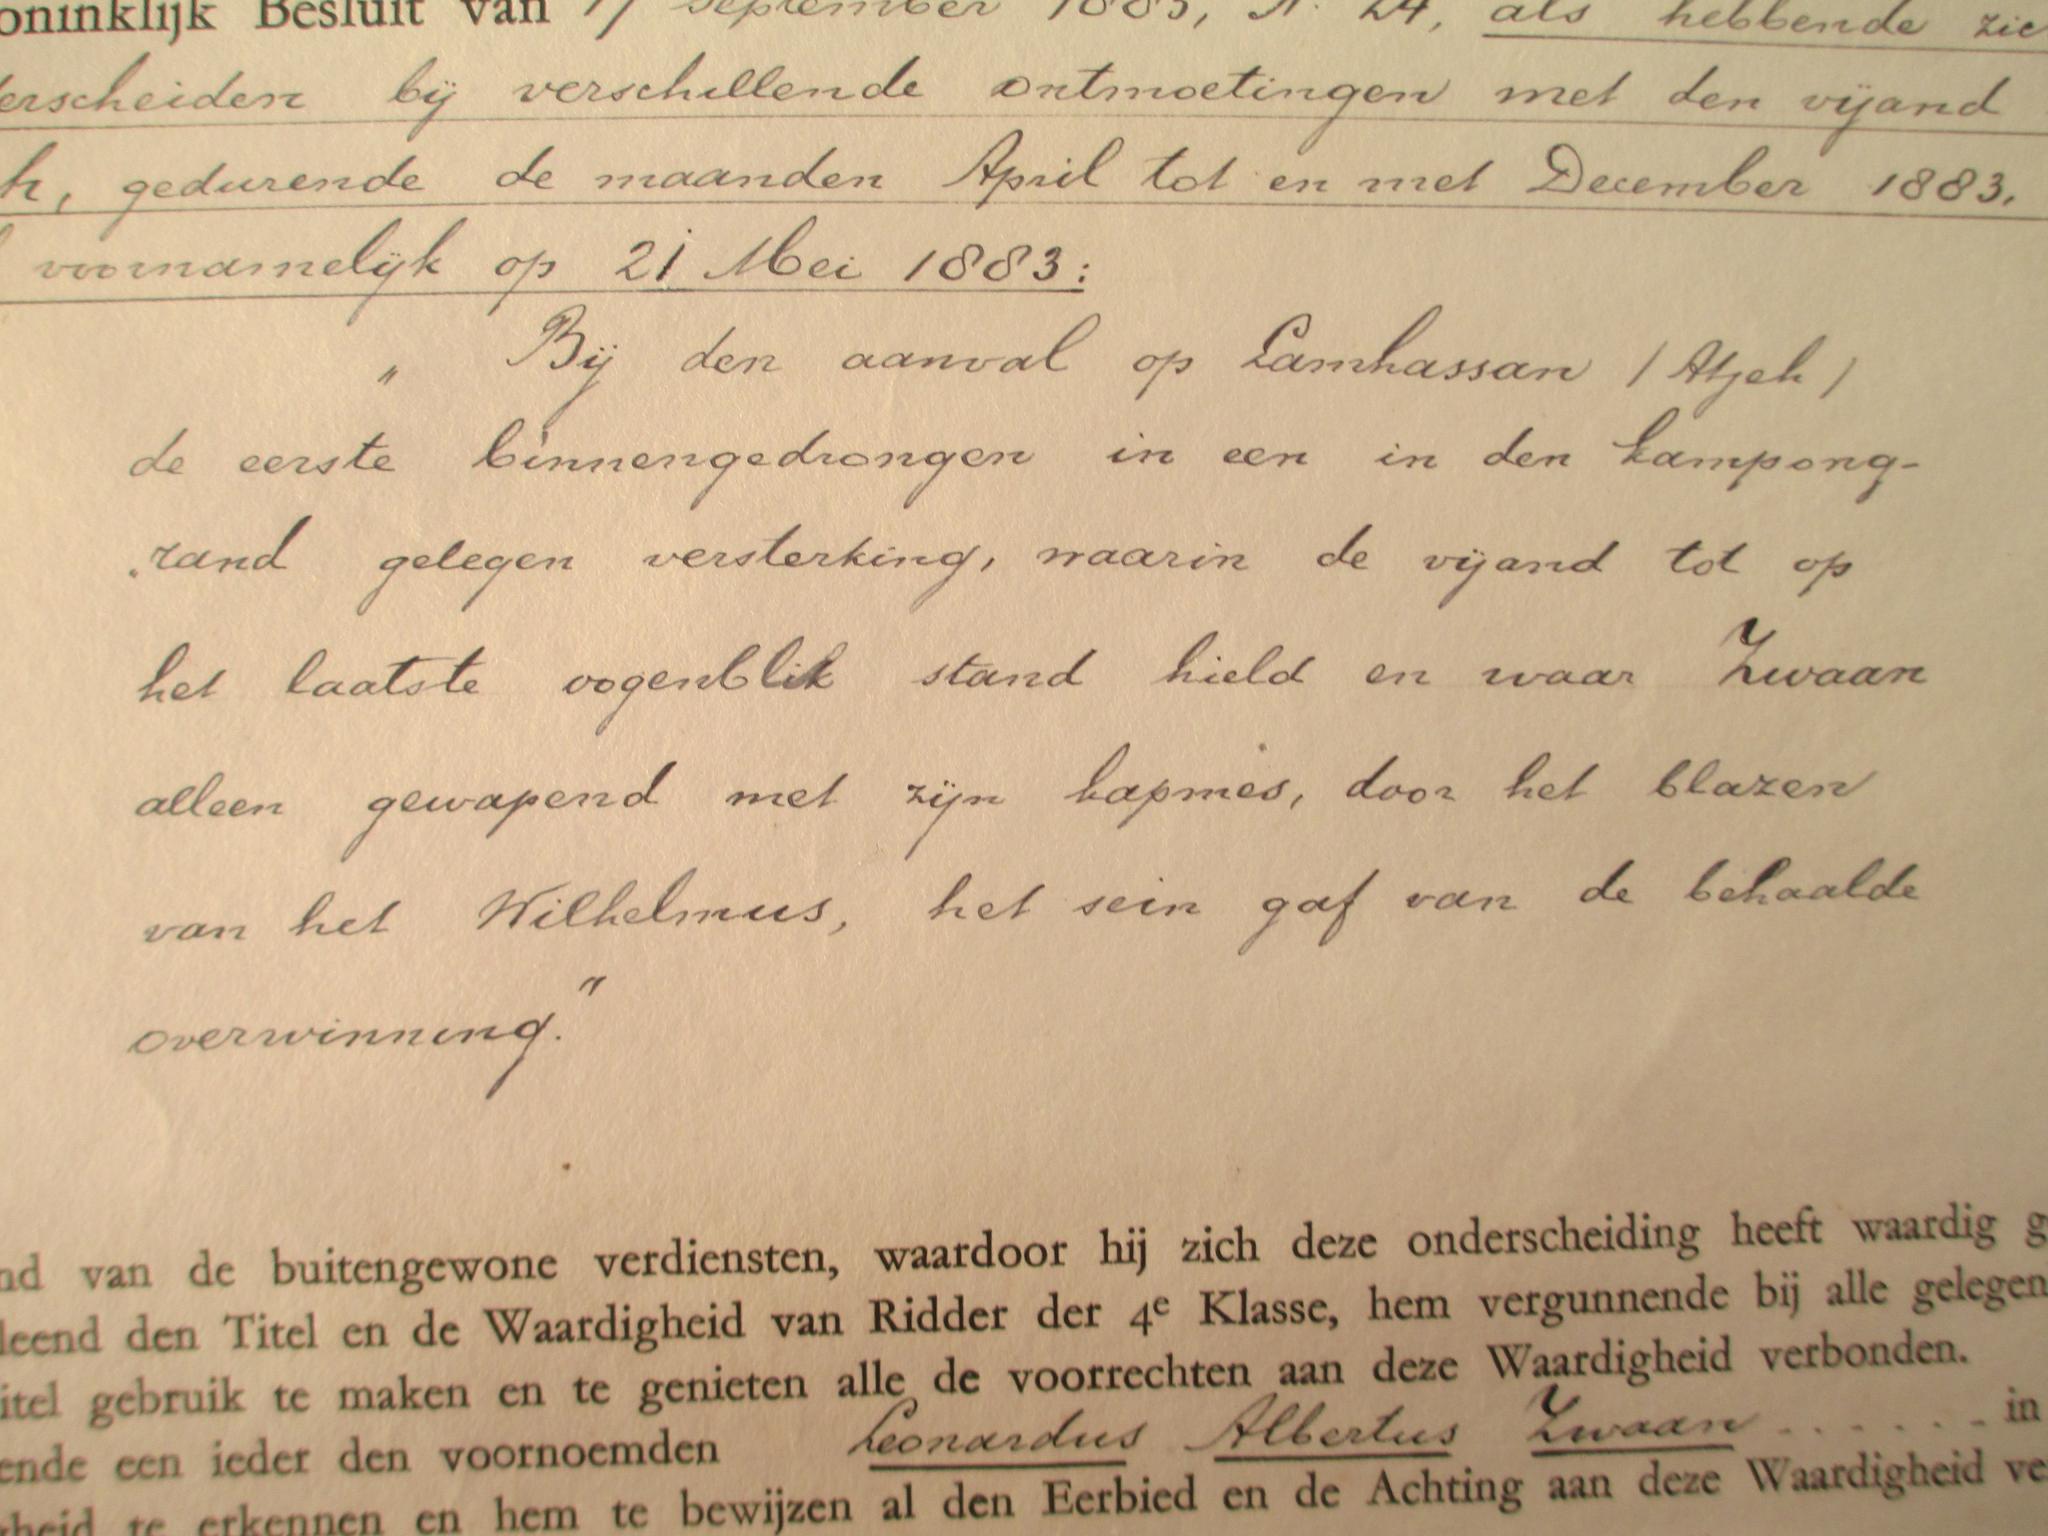 oninklijk Besluit van 17 September 1885, N. 24, als hebbende zic
derscheiden bij verschillende ontmoetingen met den vijand
h, gedurende de maanden April tot en met December 1883.
voornamelijk op 21 Mei 1883:
„ Bij den aanval op Lamhassan / Atjeh /
de eerste binnengedrongen in een in den kampong-
rand gelegen versterking, waarin de vijand tot op
het laatste oogenblik stand hield en waar Zwaan
alleen gewapend met zijn kapmes, door het blazen
van het Wilhelmus, het sein gaf van de behaalde
overwinning."
nd van de buitengewone verdiensten, waardoor hij zich deze onderscheiding heeft waardig g
leend den Titel en de Waardigheid van Ridder der 4e Klasse, hem vergunnende bij alle gelegen
itel gebruik te maken en te genieten alle de voorrechten aan deze Waardigheid verbonden.
ende een ieder den voornoemden Leonardus Albertus Zwaan . . . . . . in
gheid te erkennen en hem te bewijzen al den Eerbied en de Achting aan deze Waardigheid ve